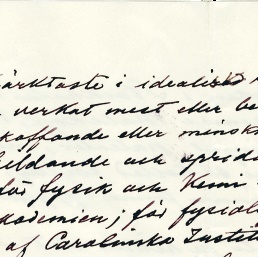 ärktaste i idealisk
verkat mest eller be
skaffande eller minsk
bildande och sprid
för fysik och Kemi
kademien; för fysiol
af Carolinska Instit